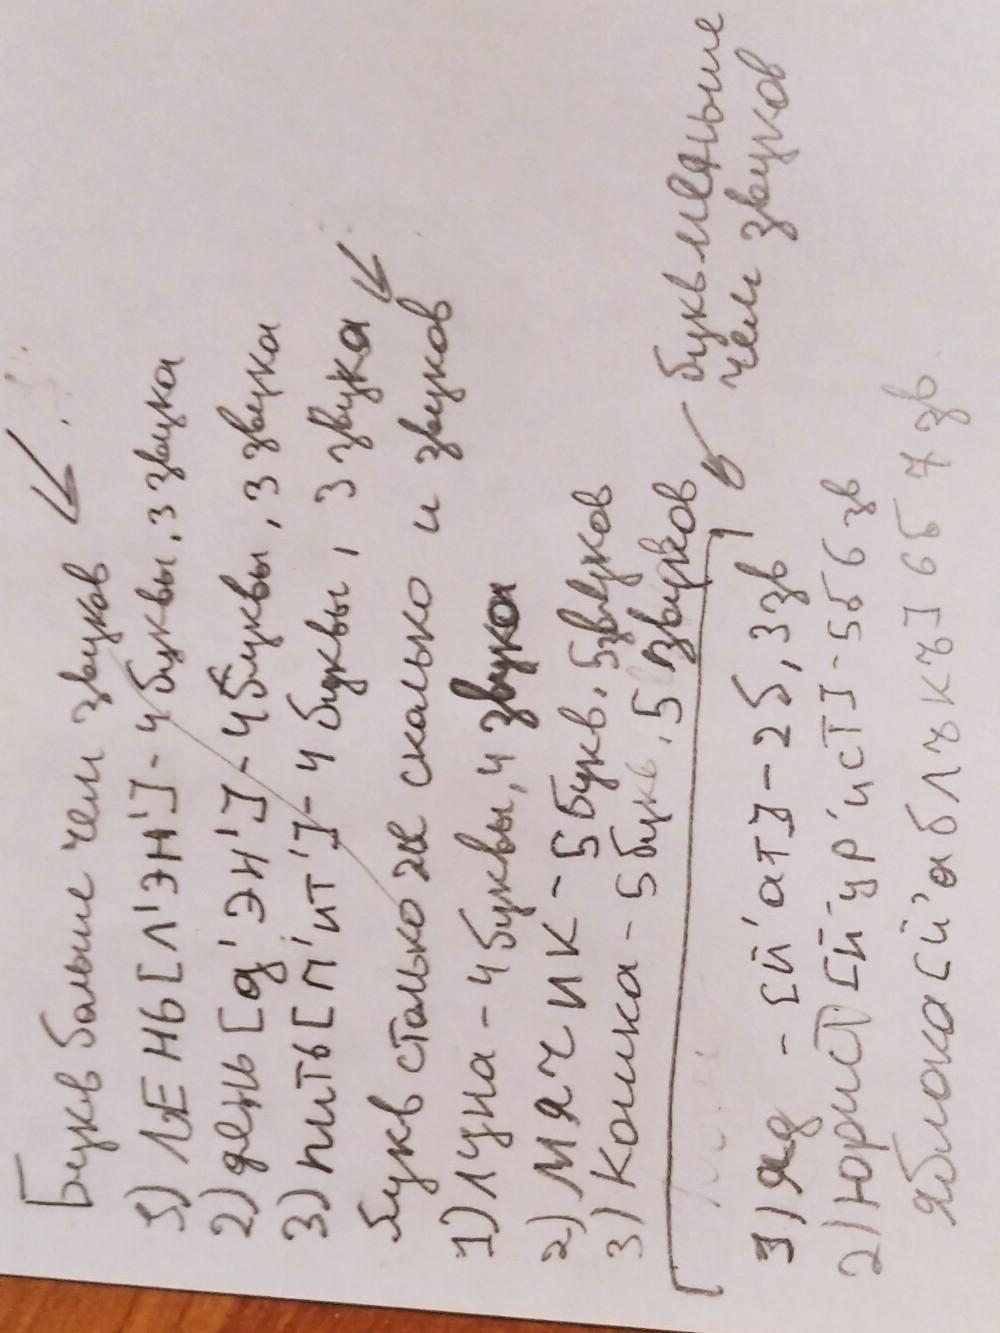 Букв больше чем звуков
1) ЛЕНЬ [Л'ЭН'] - 4 буквы, 3 звука
2) день [д'ЭН'] - 4 буквы, 3 звука
3) пить [п'ит'] - 4 буквы, 3 звука
букв столько же сколько и звуков
1) луна - 4 буквы, 4 звука
2) мячик - 5 букв, 5 звуков
3) Кошка - 5 букв, 5 звуков
букв меньше
чем звуков
1) яд - [й'ат] - 2б, 3зв
2) юрист [й'ур'ист] - 5б 6 зв
яблока [й'аблъкъ] 6б 7 зв